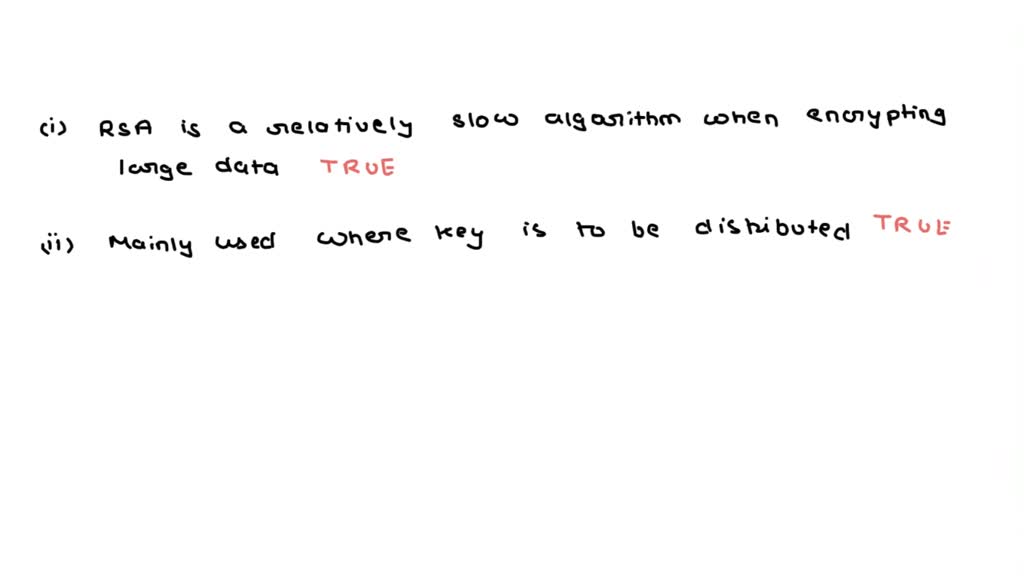 (i) RSA is a relatively slow algorithm when encrypting
large data TRUE
(ii) Mainly used where key is to be distributed TRUE